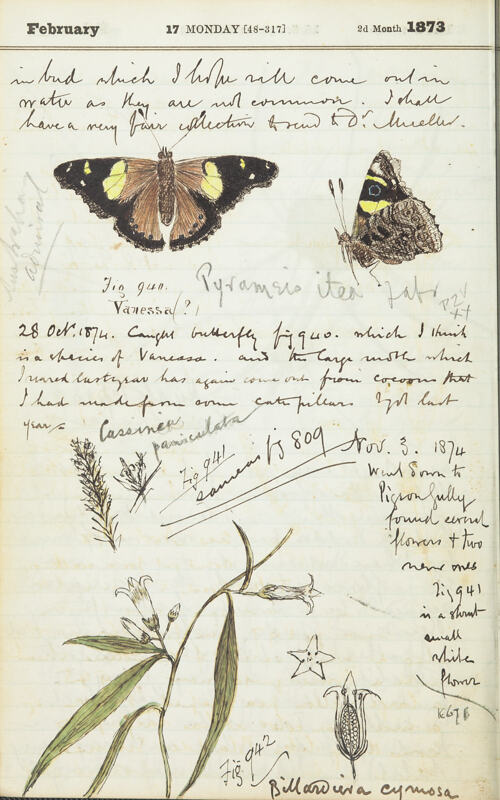 February 17 MONDAY [48-317] 2d Month 1873
in bud which I hope will come out in
water as they are not common. I shall
have a very fair collection to send to Dr Mueller.
Australian
admiral
Fig 940.
Vanessa (?)
Pyrameis itea Fabr
28 Oct. 1874. Caught butterfly fig 940. which I think
is a species of Vanessa. and the large moth which
I reared last year has again come out from cocoons that
I had made from some caterpillars I got last
year
Cassinea
paniculata
Fig 941
same as fig 809
Nov. 3. 1874
Went down to
Pigeon Gully
found several
flowers + two
new ones
Fig 941
is a
small
white
flower
K676
Fig 942
Billardiera cymosa